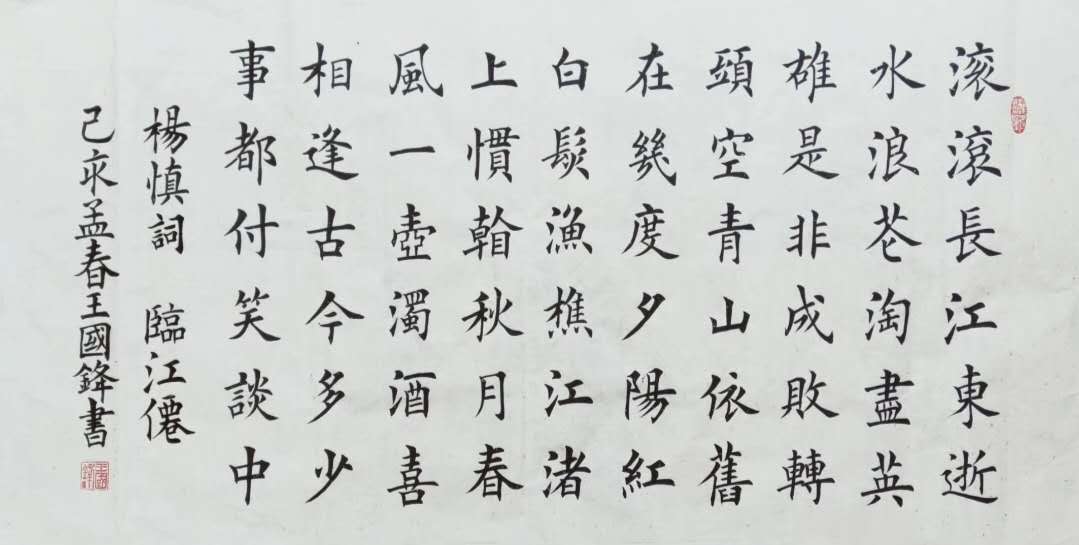 滚滚長江東逝
水浪花淘盡英
雄是非成敗轉
頭空青山依舊
在幾度夕陽紅
白髮漁樵江渚
上慣看秋月春
風一壺濁酒喜
相逢古今多少
事都付笑談中
楊慎詞 臨江僊
己亥孟春王國鋒書